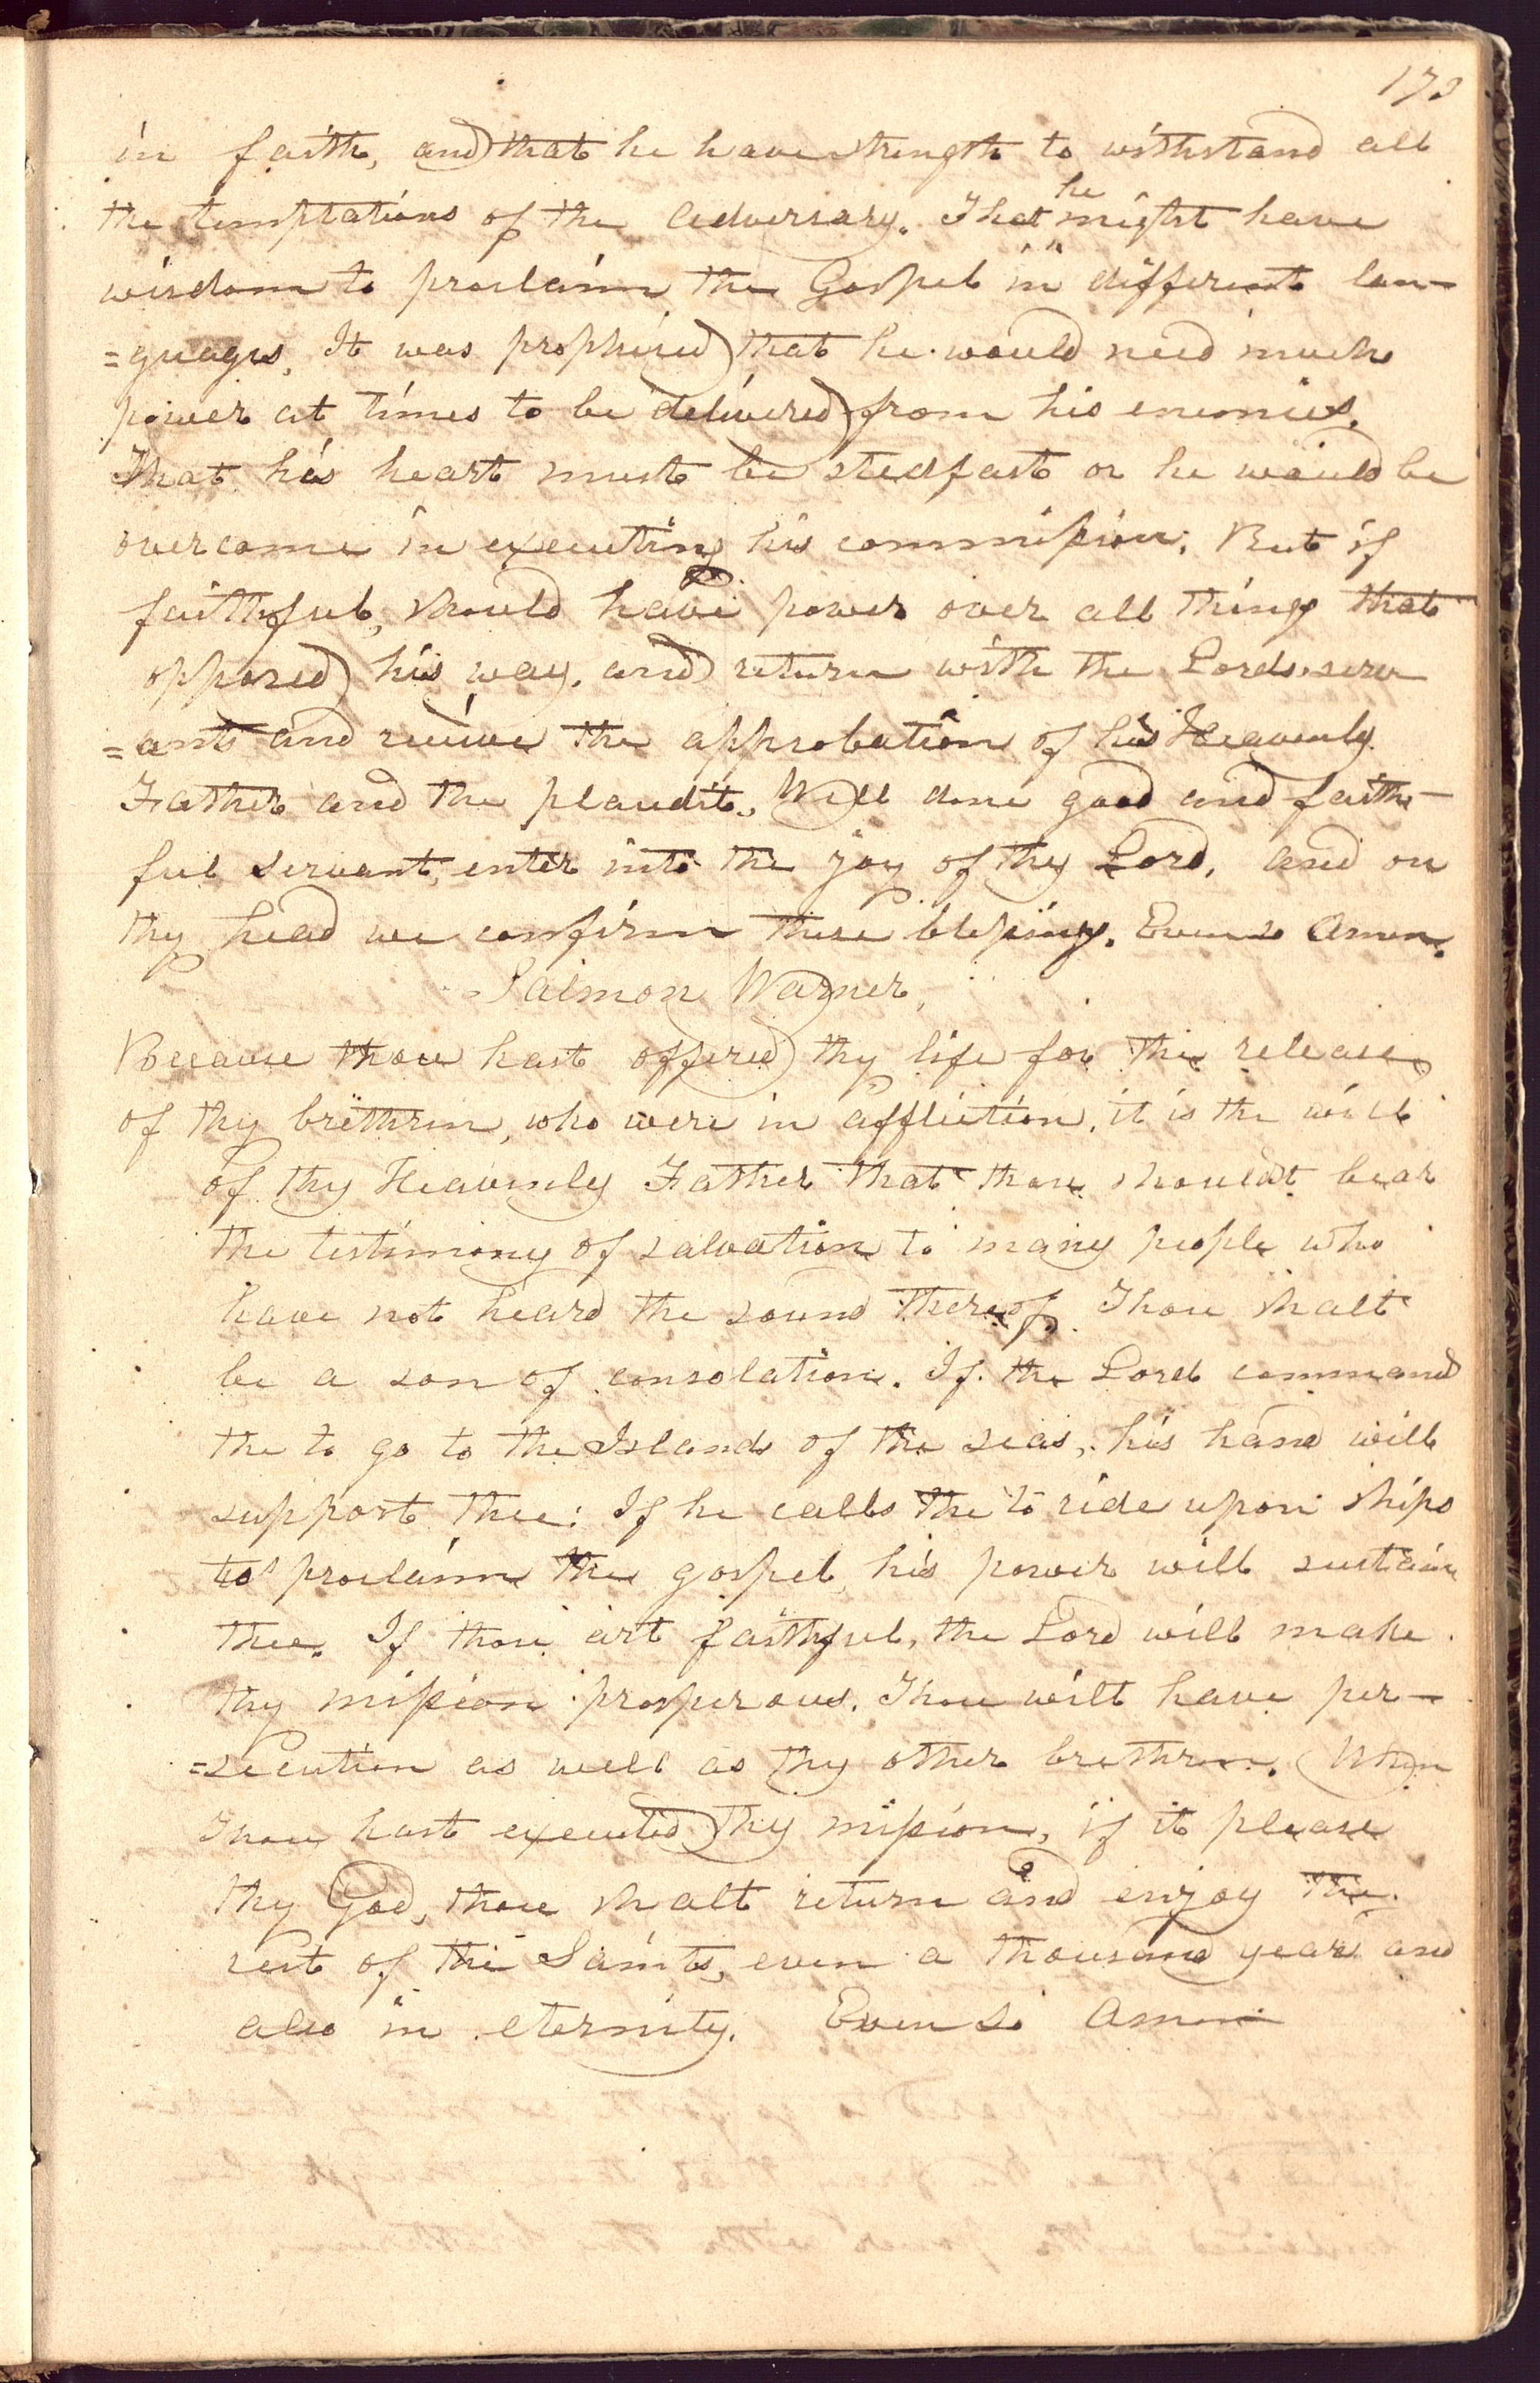 173
in faith, and that he have strength to withstand all
the temptations of the adversary. That he might have
wisdom to proclaim the Gospel in different lan-
=guages, It was prophisied that he would need much
power at times to be delivered from his enemies.
That his heart must be stedfast or he would be
overcome in executing his commission. But if
faithful, should have power over all things that
opposed his way, and return with the Lords serv
=ants and receive the approbation of his Heavenly
Father and the plaudit, Well done good and faith-
ful servant, enter into the joy of thy Lord, and on
thy head we confirm these blessings. Even so Amen.
Salmon Warner,
Because thou hast offered thy life for the release
of thy brethren, who were in affliction, it is the will
of thy Heavenly Father that thou shouldst bear
the testimony of salvation to many people who
have not heard the sound thereof, Thou shalt
be a son of consolation. If the Lord command
the to go to the Islands of the seas, his hand will
support thee: If he calls the to ride upon ships
to proclaim the gospel, his power will sustain
thee. If thou art faithful, the Lord will make
thy mission prosperous. Thou wilt have per-
=secution as well as thy other brethren. When
Thou hast executed thy mission, if it please
thy God, thou shalt return and enjoy the
rest of the Saints, even a thousand years and
also in eternity. Even so Amen